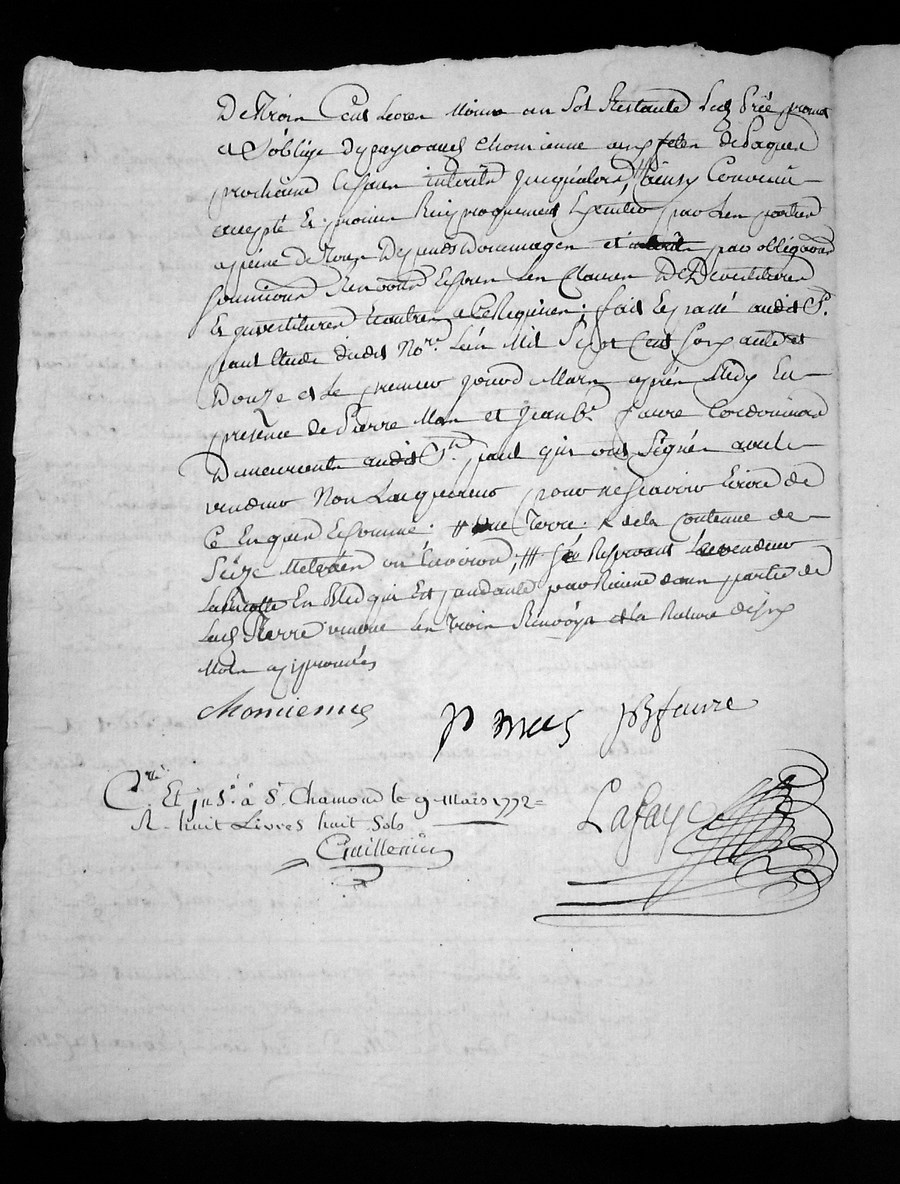 De Trois Cent Livres Moins un Sol Restante Led. Priè promet
et S'oblige Dy payer aud. Chomienne aux fetes de Paques
prochaine Et sans interets Jusqualors, # ainsy Convenu
accepté Et promis Reciproquement Executer par Les parties
a peine de Tous Depends Dommages et par obligations
Soumissions Renons Et sous Les Clauses De Devestitures
Et investitures Et autres a Ce Requises; fait Et passé audit St.
paul Etude dudit Nore. L'an Mil Sept Cent Soixante et
Douze et Le premier Jour de Mars après Midy En
presence de Pierre Mas et Jean Be. faure Cordonniers
Demeurants audit St. paul qui ont Signés avec Le
vendeur Non L'acquereur pour ne Scavoir Ecrire de
Ce Enquis Et Sommé. # une Terre. x de la Contenue de
Seize Meterées ou Environ, ## Se Reservant Le vendeur
La Recolte En Bled qui Est pendante par Racine dans partie de
Lad. Terre vendue Les trois Renvoys et la Rature de six
Mots approuvés
Chomienne
P mas JB faure
C.re Et ins.é à St. Chamond le 9 Mars 1772 =
R. huit Livres huit Sols
Lafaye
Guillemin